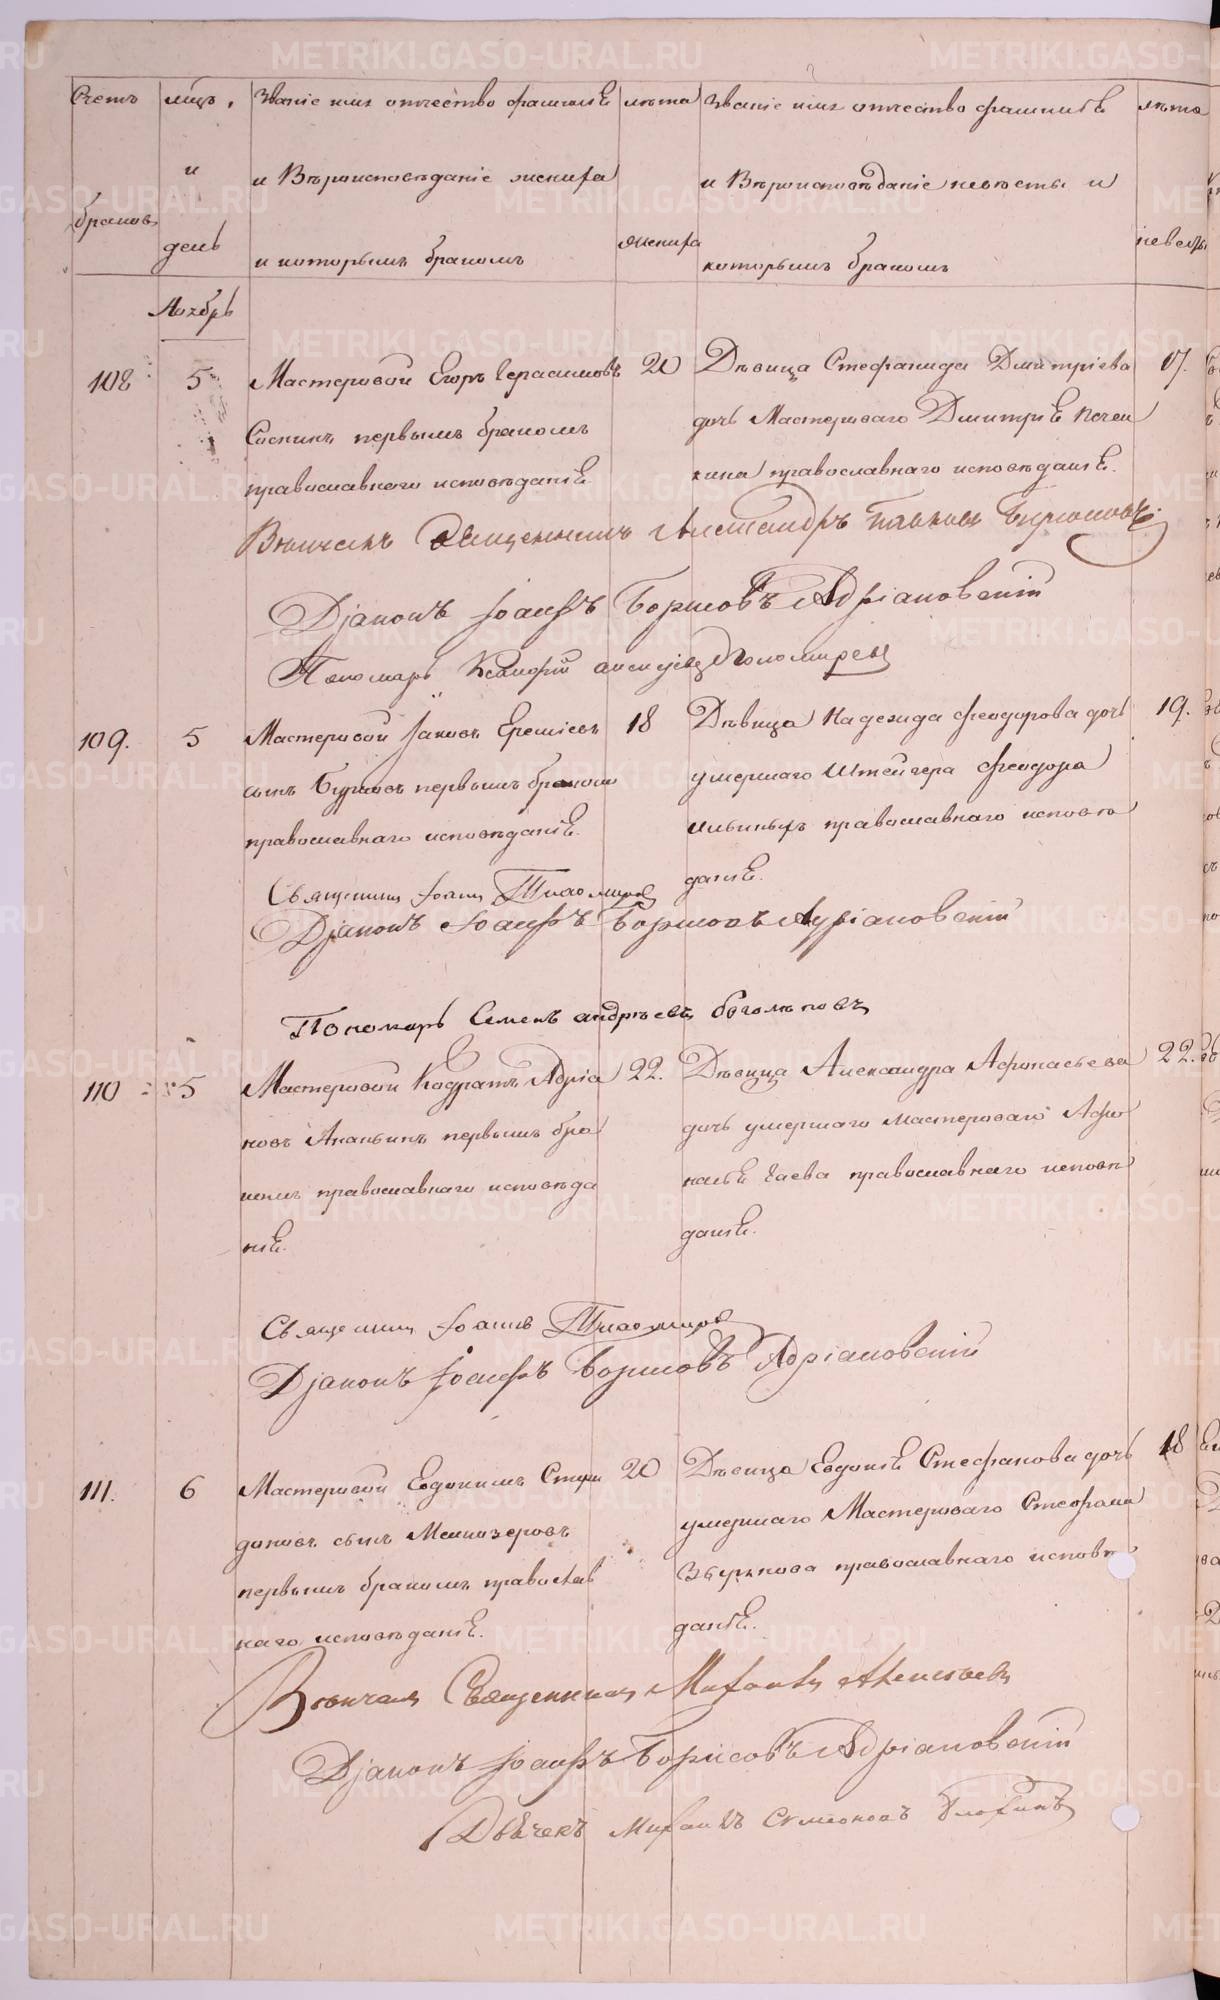 Счетъ
браковъ
мѣцъ
и
день
Званіе имя отчество фамилія
и Вѣроисповѣданіе жениха
и которымъ бракомъ
лѣта
жениха
Званіе имя отчество фамилія
и Вѣроисповѣданіе невѣсты и
которымъ бракомъ
лѣта
невесты
Ноябрь
108
5
Мастеровой Егоръ Герасимовъ
Соснинъ первымъ бракомъ
православнаго исповѣданія
20
Дѣвица Стефанида Дмитріева
дочь Мастероваго Дмитрія
православнаго исповѣданія.
17.
Вѣнчалъ Священникъ Александръ
Діаконъ Іосифъ Борисовъ Адріановскій
Пономарь
109.
5
Мастеровой Іаковъ Ереміевъ
сынъ Бурловъ первымъ бракомъ
православнаго исповѣданія.
18
Дѣвица Надежида Феодорова дочь
умершаго Штейгера Феодора
православнаго исповѣ
данія.
19.
Священникъ Іоаннъ Тихомировъ
Діаконъ Іосифъ Борисовъ Адріановскій
Пономарь Семенъ андрѣевъ боголѣповъ
110
5
Мастеровой Кодратъ Адріа
новъ Ананьинъ первымъ бра
комъ православнаго исповѣда
нія.
22.
Дѣвица Александра Афонасьева
дочь умершаго мастероваго Афо
насья Гаева православнаго исповѣ
данія.
22.
Священникъ Іоаннъ Тихомировъ
Діаконъ Іосифъ Борисовъ Адріановскій
111.
6
Мастеровой Евдокимъ Спири
доновъ сынъ
первымъ бракомъ православ
наго исповѣданія.
20
Дѣвица Евдокія Стефанова дочь
умершаго Мастероваго Стефана
православнаго исповѣ
данія.
18
Вѣнчалъ Священникъ Михаилъ Алексѣевъ
Діаконъ Іосифъ Борисовъ Адріановскій
Дьячекъ Михаилъ Симеоновъ Блохинъ